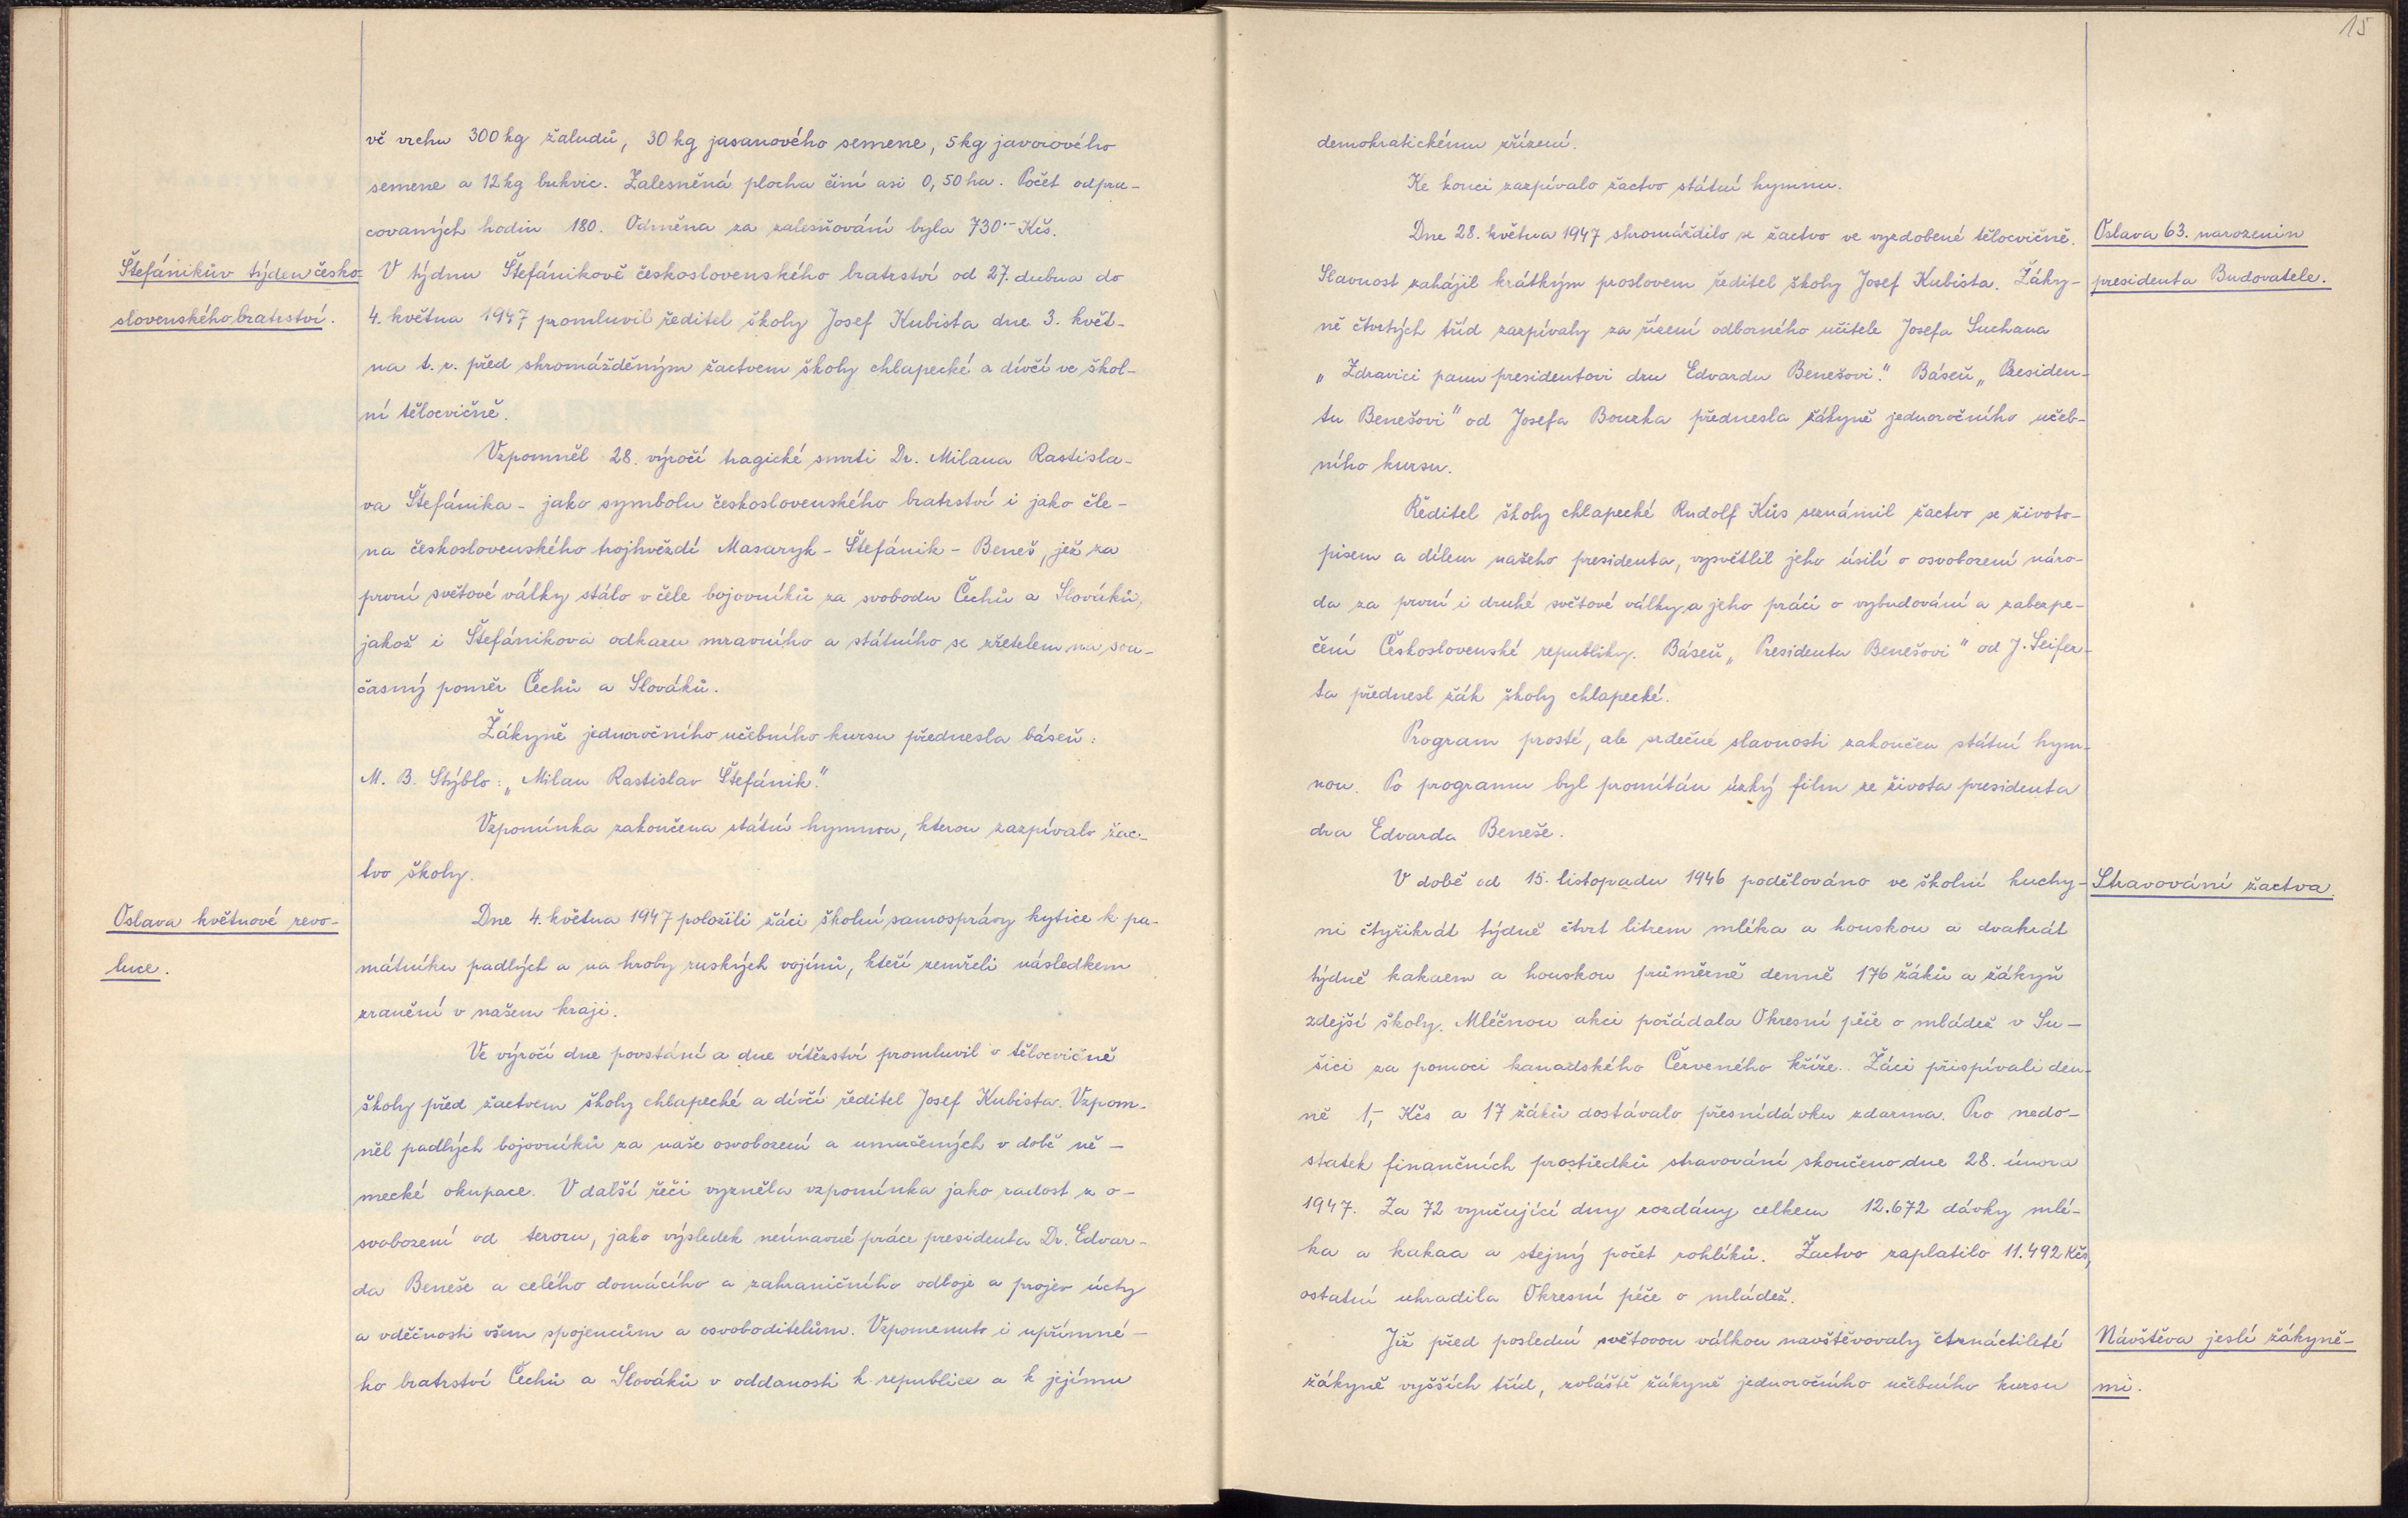 vě vrchu 300 kg žaludů, 30 kg jasanového semene, 5 kg javorového
semene a 12 kg bukvic. Zalesněná plocha činí asi 0,50 ha. Počet odpra-
covaných hodin 180. Odměna za zalesňování byla 730.- Kčs.
Štefánikův týden česko-
slovenského bratrství.
V týdnu Štefánikově československého bratrství od 27. dubna do
4. května 1947 promluvil ředitel školy Josef Kubista dne 3. květ-
na t. r. před shromážděným žactvem školy chlapecké a dívčí ve škol-
ní tělocvičně.
Vzpomněl 28. výročí tragické smrti Dr. Milana Rastisla-
va Štefánika - jako symbolu československého bratrství i jako čle-
na československého trojhvězdí Masaryk - Štefánik - Beneš, jež za
první světové války stálo v čele bojovníků za svobodu Čechů a Slováků,
jakož i Štefánikova odkazu mravního a státního se zřetelem na sou-
časný poměr Čechů a Slováků.
Žákyně jednoročního učebního kursu přednesla báseň:
M. B. Stýblo: „Milan Rastislav Štefánik."
Vzpomínka zakončena státní hymnou, kterou zazpívalo žac-
tvo školy.
Oslava květnové revo-
luce.
Dne 4. května 1947 položili žáci školní samosprávy kytice k pa-
mátníku padlých a na hroby ruských vojínů, kteří zemřeli následkem
zranění v našem kraji.
Ve výročí dne povstání a dne vítězství promluvil v tělocvičně
školy před žactvem školy chlapecké a dívčí ředitel Josef Kubista. Vzpom-
něl padlých bojovníků za naše osvobození a umučených v době ně-
mecké okupace. V další řeči vyzněla vzpomínka jako radost z o-
svobození od teroru, jako výsledek neúnavné práce presidenta Dr. Edvar-
da Beneše a celého domácího a zahraničního odboje a projev úcty
a vděčnosti všem spojencům a osvoboditelům. Vzpomenuto i upřímné-
ho bratrství Čechů a Slováků v oddanosti k republice a k jejímu
15
demokratickému zřízení.
Ke konci zazpívalo žactvo státní hymnu.
Oslava 63. narozenin
presidenta Budovatele.
Dne 28. května 1947 shromáždilo se žactvo ve vyzdobené tělocvičně.
Slavnost zahájil krátkým proslovem ředitel školy Josef Kubista. Žáky-
ně čtvrtých tříd zazpívaly za řízení odborného učitele Josefa Suchana
„Zdravici panu presidentovi dru Edvardu Benešovi." Báseň „Presiden-
tu Benešovi" od Josefa Bouzka přednesla žákyně jednoročního učeb-
ního kursu.
Ředitel školy chlapecké Rudolf Kůs seznámil žactvo se životo-
pisem a dílem našeho presidenta, vysvětlil jeho úsilí o osvobození náro-
da za první i druhé světové války a jeho práci o vybudování a zabezpe-
čení Československé republiky. Báseň „Presidentu Benešovi" od J. Seifer-
ta přednesl žák školy chlapecké.
Program prosté, ale srdečné slavnosti zakončen státní hym-
nou. Po programu byl promítán úzký film ze života presidenta
dra Edvarda Beneše.
Stravování žactva.
V době od 15. listopadu 1946 podělováno ve školní kuchy-
ni čtyřikrát týdně čtvrt litrem mléka a houskou a dvakrát
týdně kakaem a houskou průměrně denně 176 žáků a žákyň
zdejší školy. Mléčnou akci pořádala Okresní péče o mládež v Su-
šici za pomoci kanadského Červeného kříže. Žáci přispívali den-
ně 1,- Kčs a 17 žáků dostávalo přesnídávku zdarma. Pro nedo-
statek finančních prostředků stravování skončeno dne 28. února
1947. Za 72 vyučující dny rozdány celkem 12.672 dávky mlé-
ka a kakaa a stejný počet rohlíků. Žactvo zaplatilo 11.492 Kčs,
ostatní uhradila Okresní péče o mládež.
Návštěva jeslí žákyně-
mi.
Již před poslední světovou válkou navštěvovaly čtrnáctileté
žákyně vyšších tříd, zvláště žákyně jednoročního učebního kursu